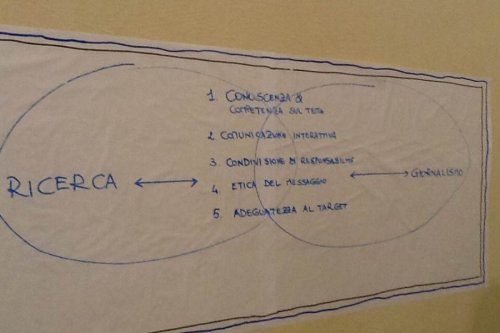 1. CONOSCENZA &
COMPETENZA SUL TEMA
2. COMUNICAZIONE INTERATTIVA
3. CONDIVISIONE DI RESPONSABILITÀ
RICERCA
4. ETICA DEL MESSAGGIO
GIORNALISMO
5. ADEGUATEZZA AL TARGET